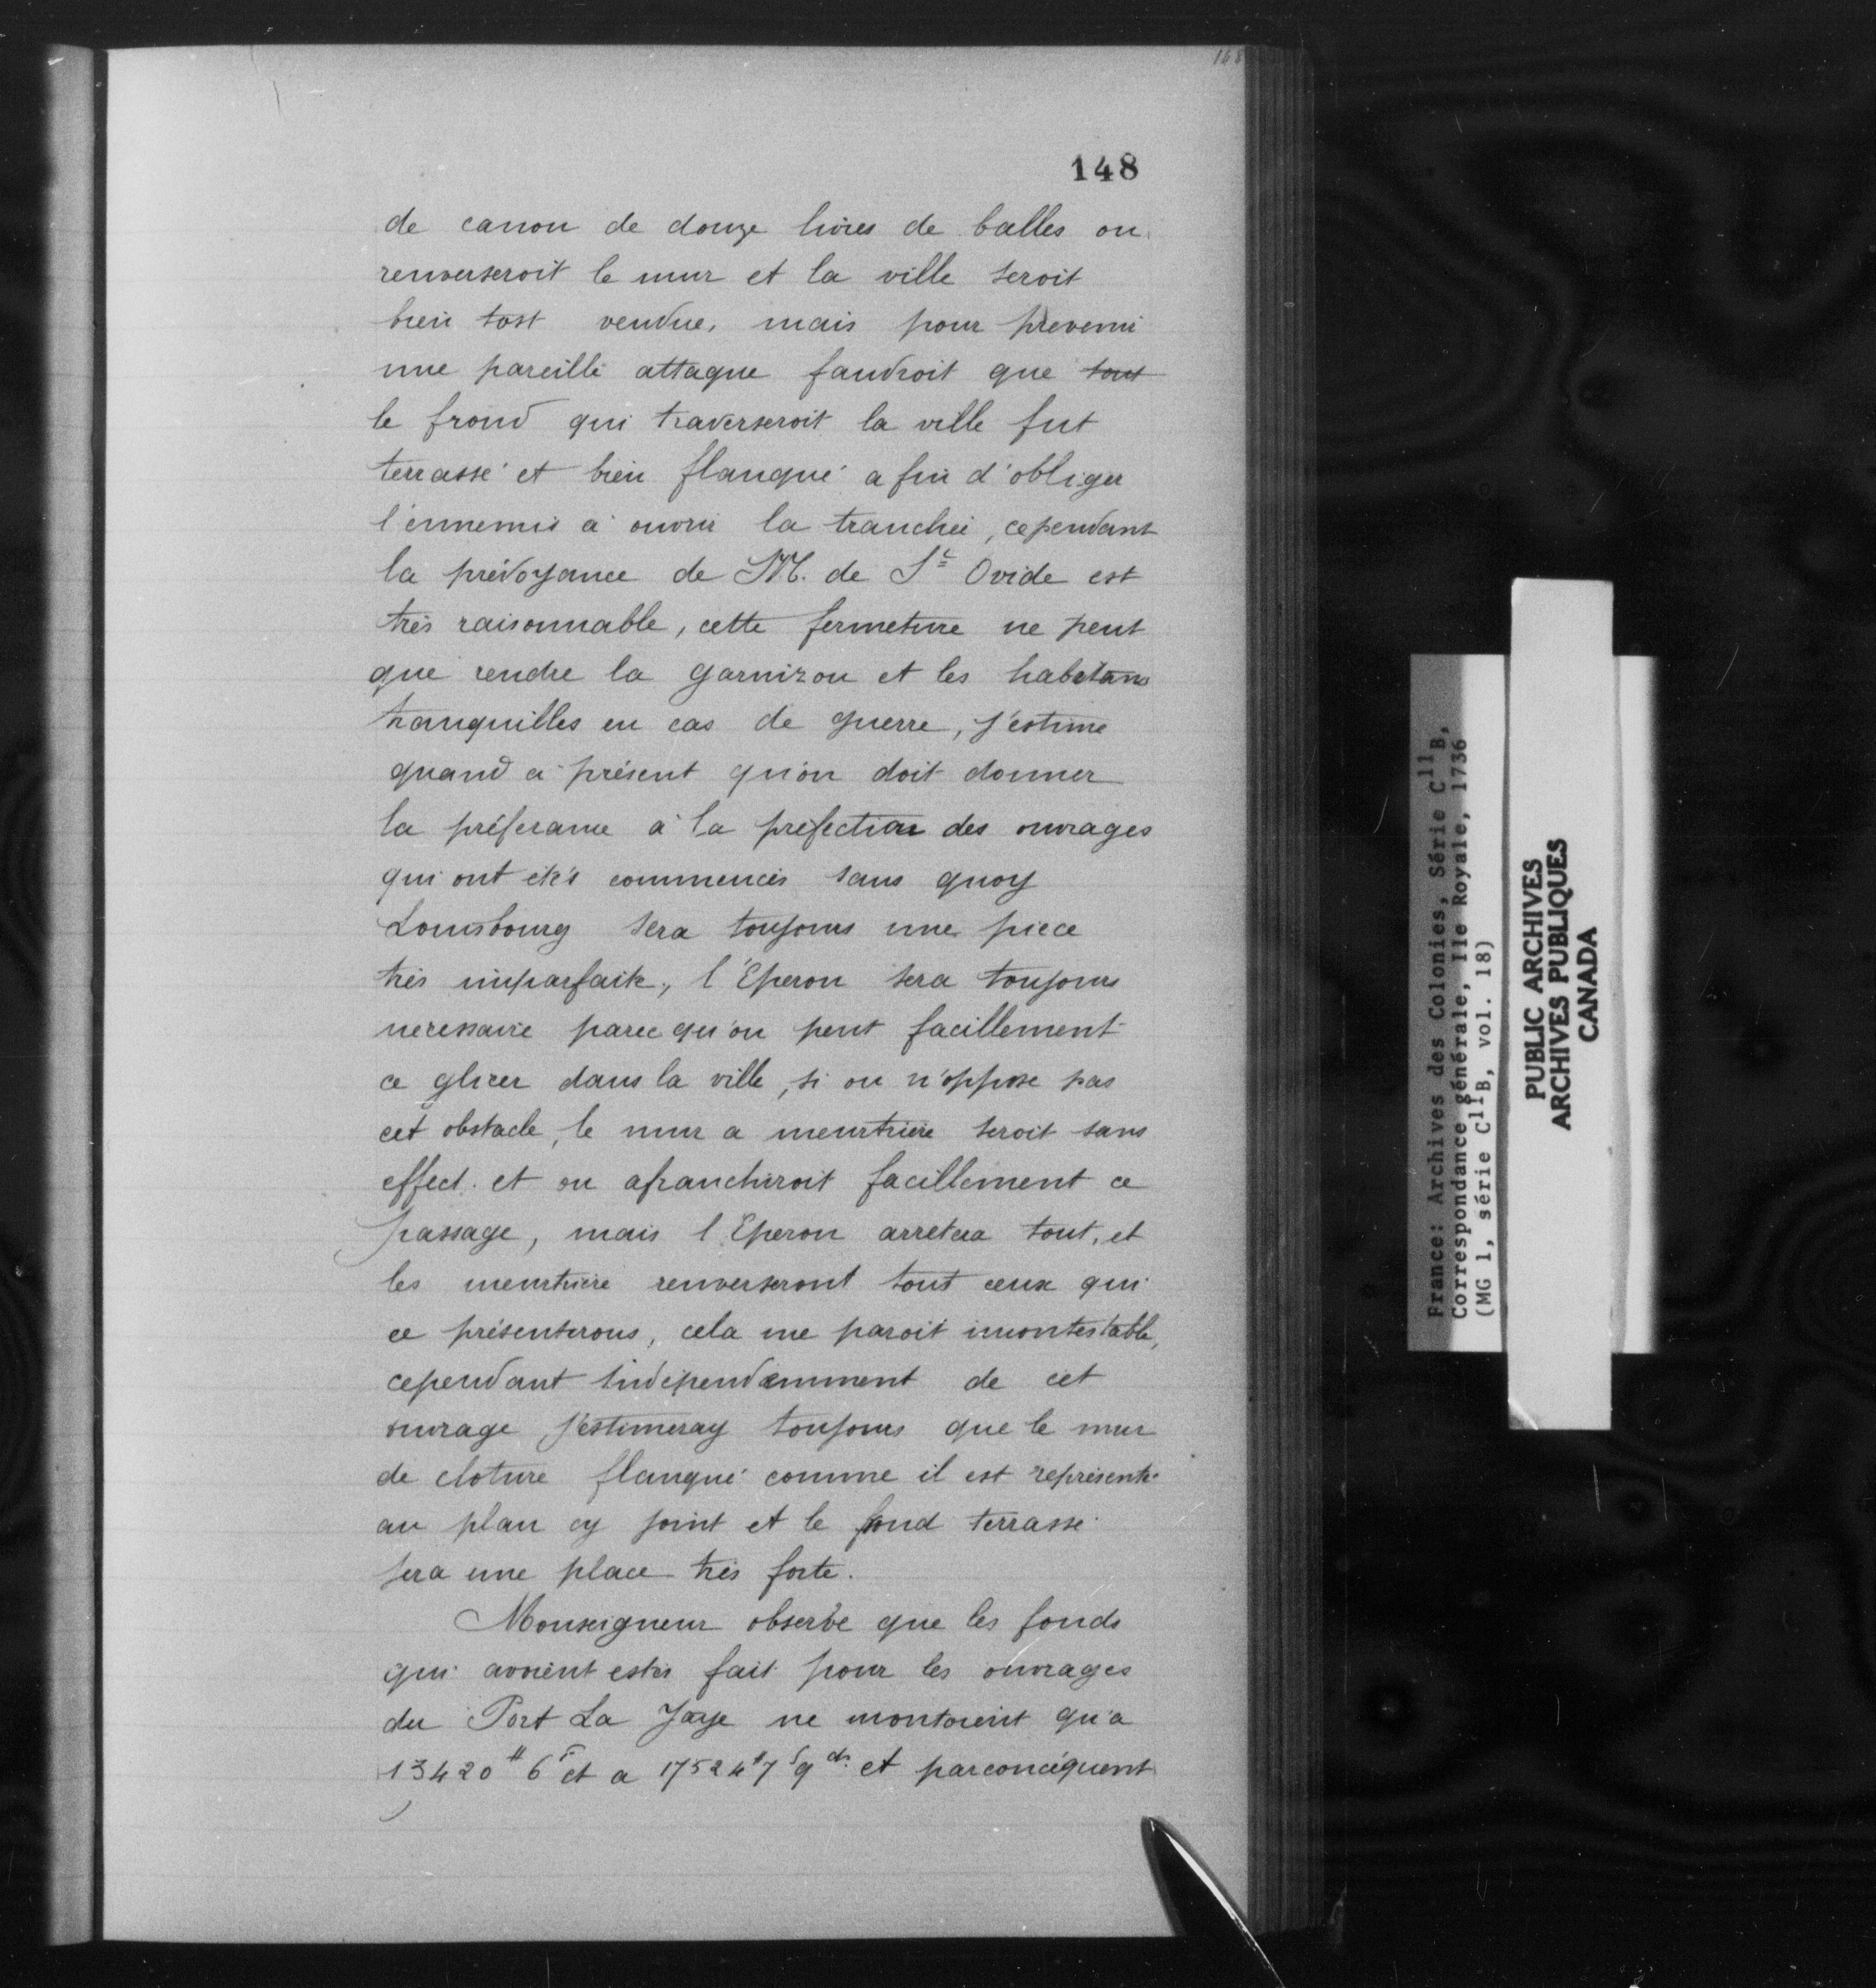 148
148
de canon de douze livres de balles on
renverseroit le mur et la ville seroit
bien tost vendue, mais pour prevenir
une pareille attaque faudroit que tout
le frond qui traverseroit la ville fut
terrassé et bien flanqué a fin d'obliger
l'ennemis a ouvrir la tranchée, cependant
la prévoyance de M. de St Ovide est
très raisonnable, cette fermeture ne peut
que rendre la garnizon et les habitans
tranquilles en cas de guerre, j'estime
quand a présent qu'on doit donner
la préferance à la prefection des ouvrages
qui ont étés commencés sans quoy
Louisbourg sera toujours une piece
très imparfaite, l'Eperon sera toujours
necessaire parce qu'on peut facillement
ce glicer dans la ville, si on n'oppose pas
cet obstacle, le mur a meurtriere seroit sans
effect. et on afranchiroit facillement ce
passage, mais l'Eperon arretera tout, et
les meurtriere renverseront tout ceux qui
ce présenterons, cela me paroit incontestable,
cependant indépendemment de cet
ouvrage j'estimeray toujours que le mur
de cloture flanqué comme il est représenté
au plan cy joint et le frond terrassé
sera une place très forte.
Monseigneur observe que les fonds
qui avoient estés fait pour les ouvrages
du Port La Joye ne montoient qu'a
13420# 6s et a 17524# 7s 9ds. et parconcéquent
France: Archives des Colonies, Série C11B,
Correspondance générale, Ile Royale, 1736
(MG 1, série C11B, vol. 18)
PUBLIC ARCHIVES
ARCHIVES PUBLIQUES
CANADA